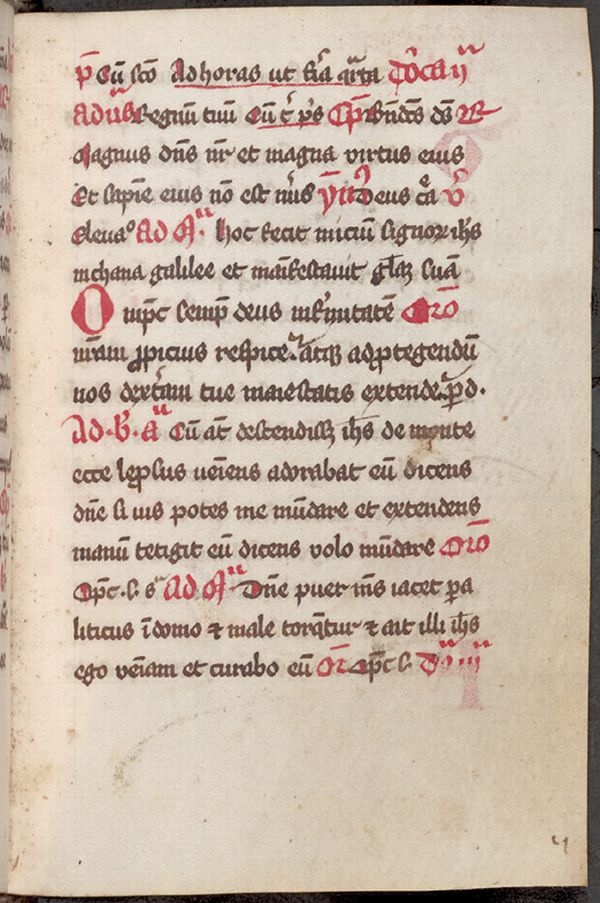 P̄ Cū sc̄o Ad horas ut fr̄ia qrta Do͞ca ii
ad uꝰ̄s Regnum tuū Cū t̄ pr̄s Cap̄ Bn̄dc̄s ds̄
Magnus dn̄s nr̄ et magna virtus eius
Et sapīe eius nō est nūs ym̄ Deus c̄a v̄
Eleuaᵒ ad M̄ᵃ hoc fecit iniciū signoꝝ ih̄s
in chana galilee et māifestauit gl̄aꝫ suā
Omp̄c semp̄ deus infirmitatē Oro̅
nr̄am ꝓpicius respice atqꝫ ad ꝓtegendū
nos dext̄am tue maiestatis extende. ꝑ d.
Ad. b̄. aᵃ Cū aū descendissꝫ ih̄s de monte
ecce leprsus veīens adorabat eū dicens
dn̄e si uis potes me mūdare et extendens
manū tetigit eū dicens volo mūdare Oro̅
Omp̄c. s. sᵃ ad Mᵃ Dn̄e puer mꝰs iacet pa
liticus ī domo ⁊ male torq̄tur ⁊ ait illi ih̄s
ego veīam et curabo eū Or̄ Omp̄c s. Dᵃ iii